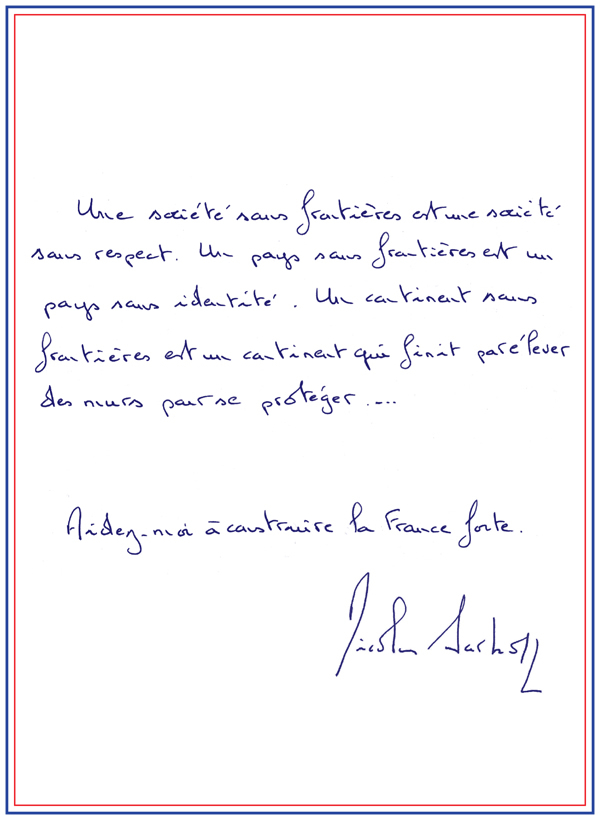 Une société sans frontières est une société
sans respect. Un pays sans frontières est un
pays sans identité. Un continent sans
frontières est un continent qui finit par élever
des murs pour se protéger....
Aidez-moi à construire la France forte.
Nicolas Sarkozy